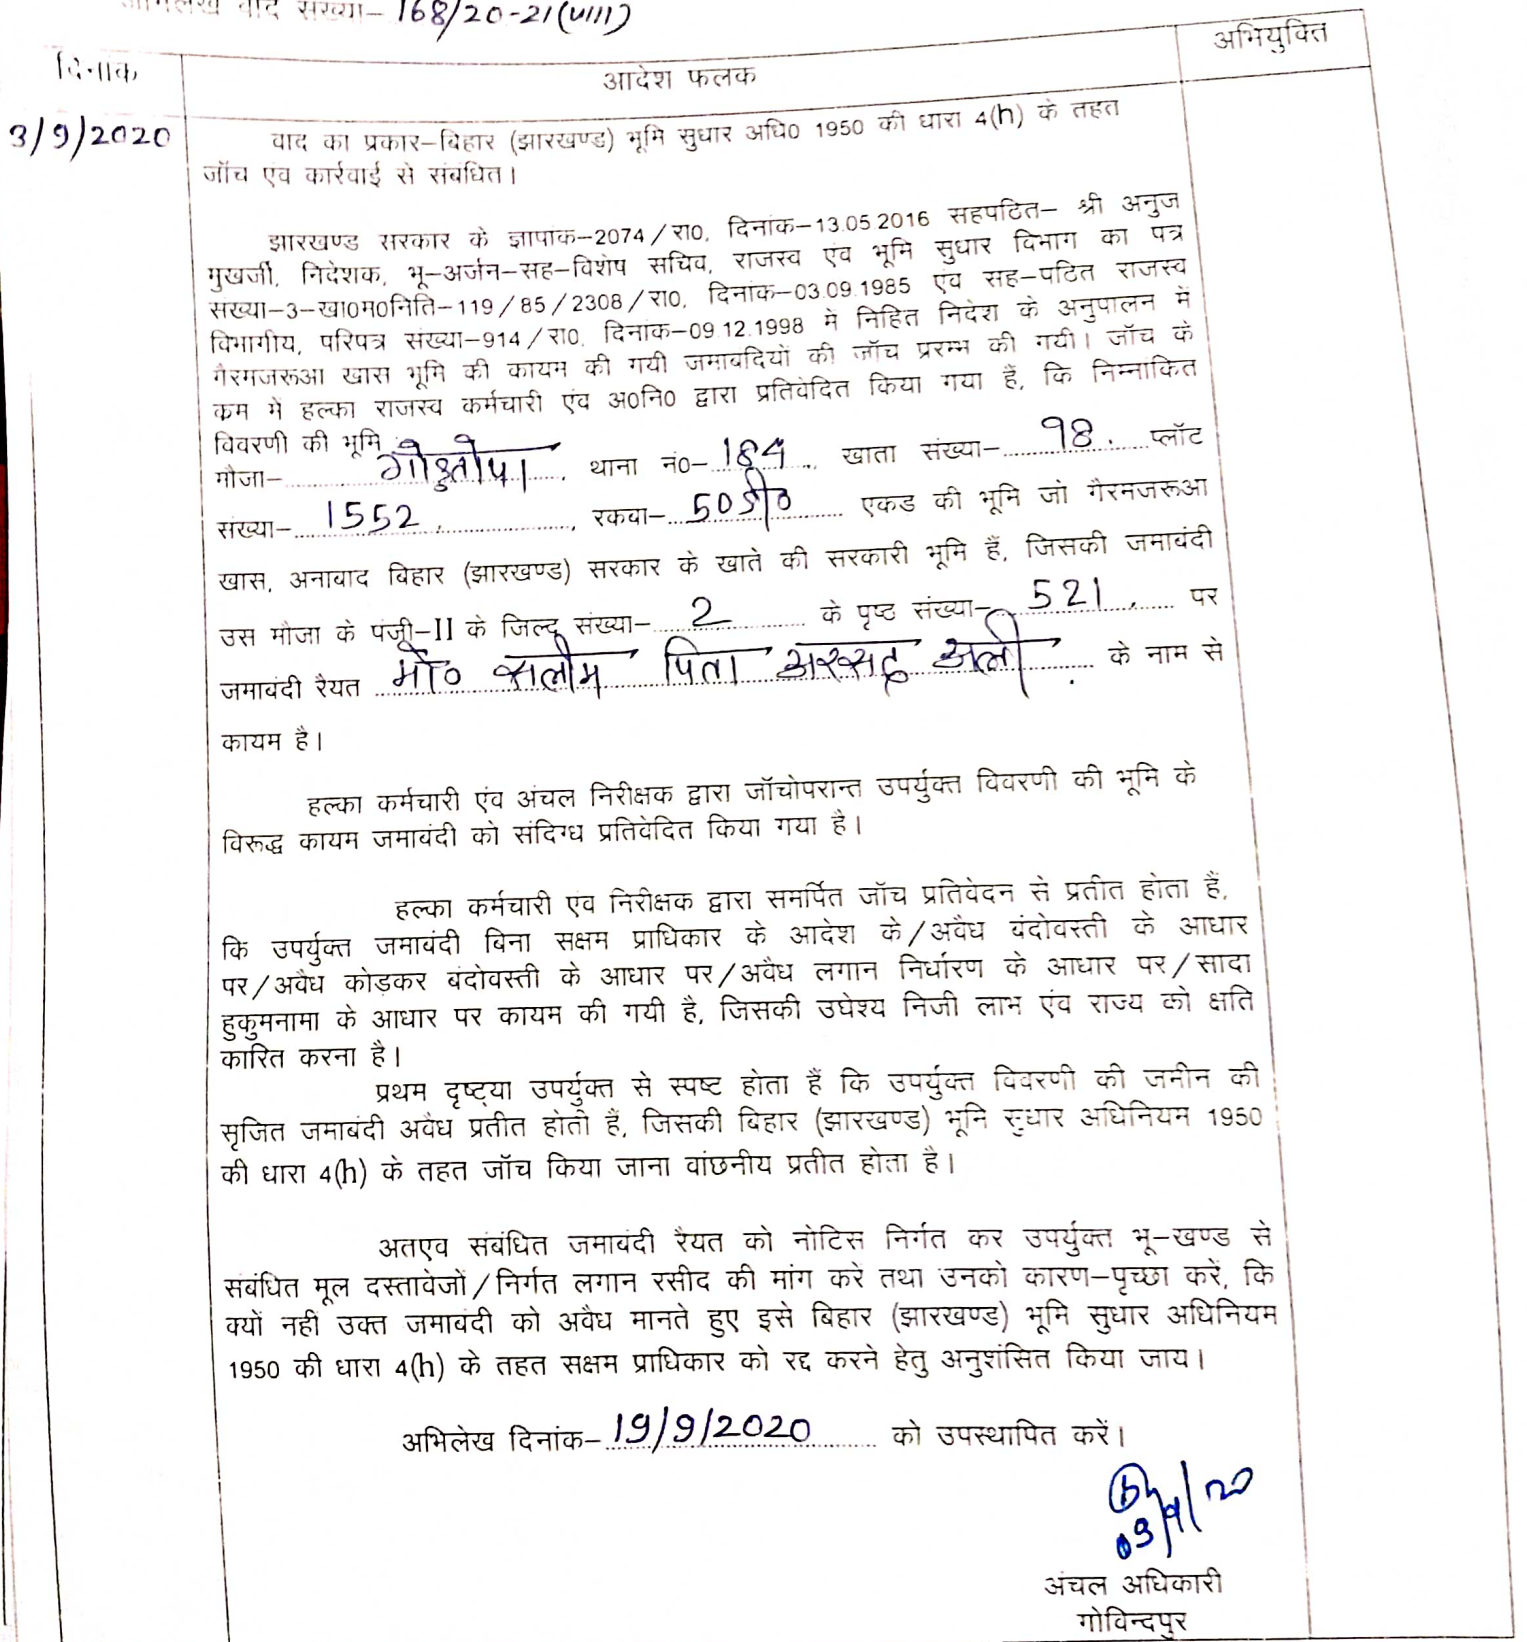 अभिलेख वाद संख्या- 168/20-21(VIII)
दिनांक
आदेश फलक
अभियुक्ति
3/9/2020
वाद का प्रकार–बिहार (झारखण्ड) भूमि सुधार अधि0 1950 की धारा 4(h) के तहत
जॉच एंव कार्रवाई से संबंधित।
झारखण्ड सरकार के ज्ञापांक–2074/रा0, दिनांक–13.05.2016 सहपठित– श्री अनुज
मुखर्जी, निदेशक, भू–अर्जन–सह–विशेष सचिव, राजस्व एंव भूमि सुधार विभाग का पत्र
संख्या–3–खा0म0निति–119/85/2308/रा0, दिनांक–03.09.1985 एंव सह–पठित राजस्व
विभागीय, परिपत्र संख्या–914/रा0, दिनांक–09.12.1998 में निहित निदेश के अनुपालन में
गैरमजरूआ खास भूमि की कायम की गयी जमाबंदियों की जॉच प्ररम्भ की गयी। जॉच के
क्रम में हल्का राजस्व कर्मचारी एंव अ0नि0 द्वारा प्रतिवेदित किया गया हैं, कि निम्नांकित
विवरणी की भूमि :
मौजा– , थाना नं0– 184 , खाता संख्या– 98 . प्लॉट
संख्या– 1552 , , रकवा– 50डी0 एकड की भूमि जो गैरमजरूआ
खास, अनाबाद बिहार (झारखण्ड) सरकार के खाते की सरकारी भूमि हैं, जिसकी जमाबंदी
उस मौजा के पंजी–II के जिल्द संख्या– 2 के पृष्ठ संख्या– 521 , पर
जमाबंदी रैयत मो० सलीम पिता अरसद अली के नाम से
कायम है।
हल्का कर्मचारी एंव अंचल निरीक्षक द्वारा जॉचोपरान्त उपर्युक्त विवरणी की भूमि के
विरूद्ध कायम जमाबंदी को संदिग्ध प्रतिवेदित किया गया है।
हल्का कर्मचारी एंव निरीक्षक द्वारा समर्पित जॉच प्रतिवेदन से प्रतीत होता हैं,
कि उपर्युक्त जमाबंदी बिना सक्षम प्राधिकार के आदेश के/अवैध बंदोवस्ती के आधार
पर/अवैध कोड़कर बंदोवस्ती के आधार पर/अवैध लगान निर्धारण के आधार पर/सादा
हुकुमनामा के आधार पर कायम की गयी है, जिसकी उघेश्य निजी लाभ एंव राज्य को क्षति
कारित करना है।
प्रथम दृष्ट्या उपर्युक्त से स्पष्ट होता हैं कि उपर्युक्त विवरणी की जमीन की
सृजित जमाबंदी अवैध प्रतीत होती हैं, जिसकी बिहार (झारखण्ड) भूमि सुधार अधिनियम 1950
की धारा 4(h) के तहत जॉच किया जाना वांछनीय प्रतीत होता है।
अतएव संबंधित जमाबंदी रैयत को नोटिस निर्गत कर उपर्युक्त भू–खण्ड से
संबंधित मूल दस्तावेजों/निर्गत लगान रसीद की मांग करें तथा उनको कारण–पृच्छा करें, कि
क्यों नहीं उक्त जमाबंदी को अवैध मानते हुए इसे बिहार (झारखण्ड) भूमि सुधार अधिनियम
1950 की धारा 4(h) के तहत सक्षम प्राधिकार को रद्द करने हेतु अनुशंसित किया जाय।
अभिलेख दिनांक– 19/9/2020 को उपस्थापित करें।
03/9/20
अंचल अधिकारी
गोविन्दपुर